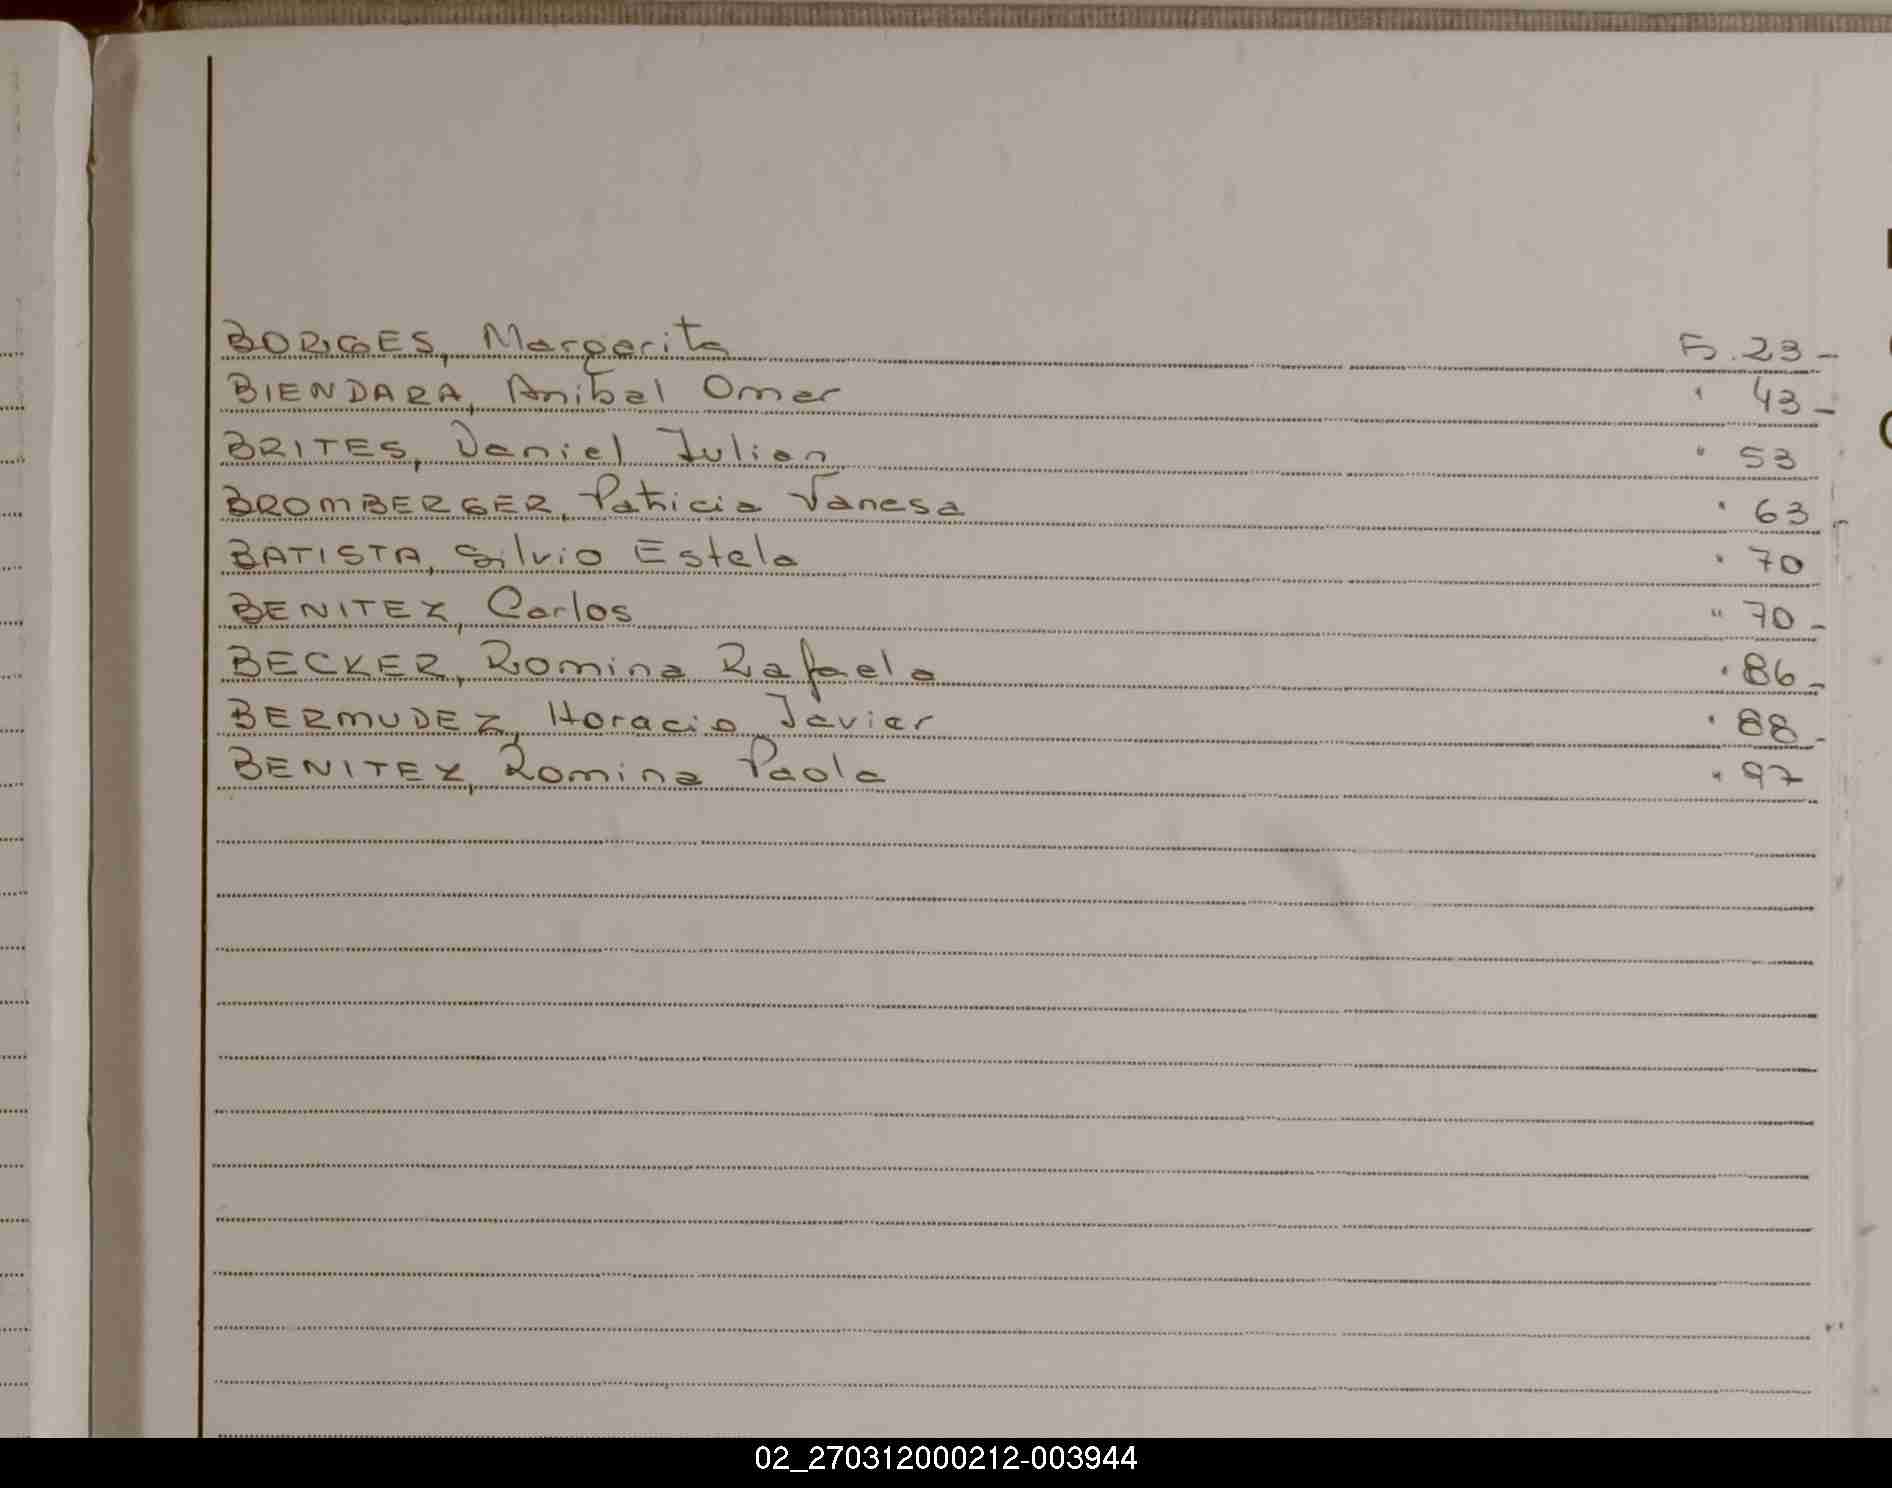 BORGES, Margarita F. 23-
BIENDARA, Anibal Omar " 43-
BRITES, Daniel Julian " 53
BROMBERGER, Patricia Vanesa " 63
BATISTA, Silvio Estela " 70
BENITEZ, Carlos " 70-
BECKER, Romina Rafaela " 86-
BERMUDEZ, Horacio Javier " 88-
BENITEZ, Romina Paola " 97
02_270312000212-003944